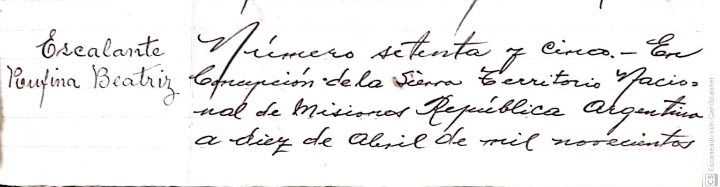 Escalante
Rufina Beatriz
Número setenta y cinco.- En
Concepción de la Sierra Territorio Nacio=
nal de Misiones República Argentina
a diez de Abril de mil novecientos
CS Escaneado con CamScanner